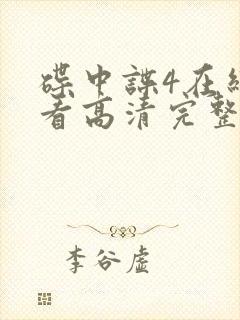 碟中諜4在線
看高清完整
李谷虛